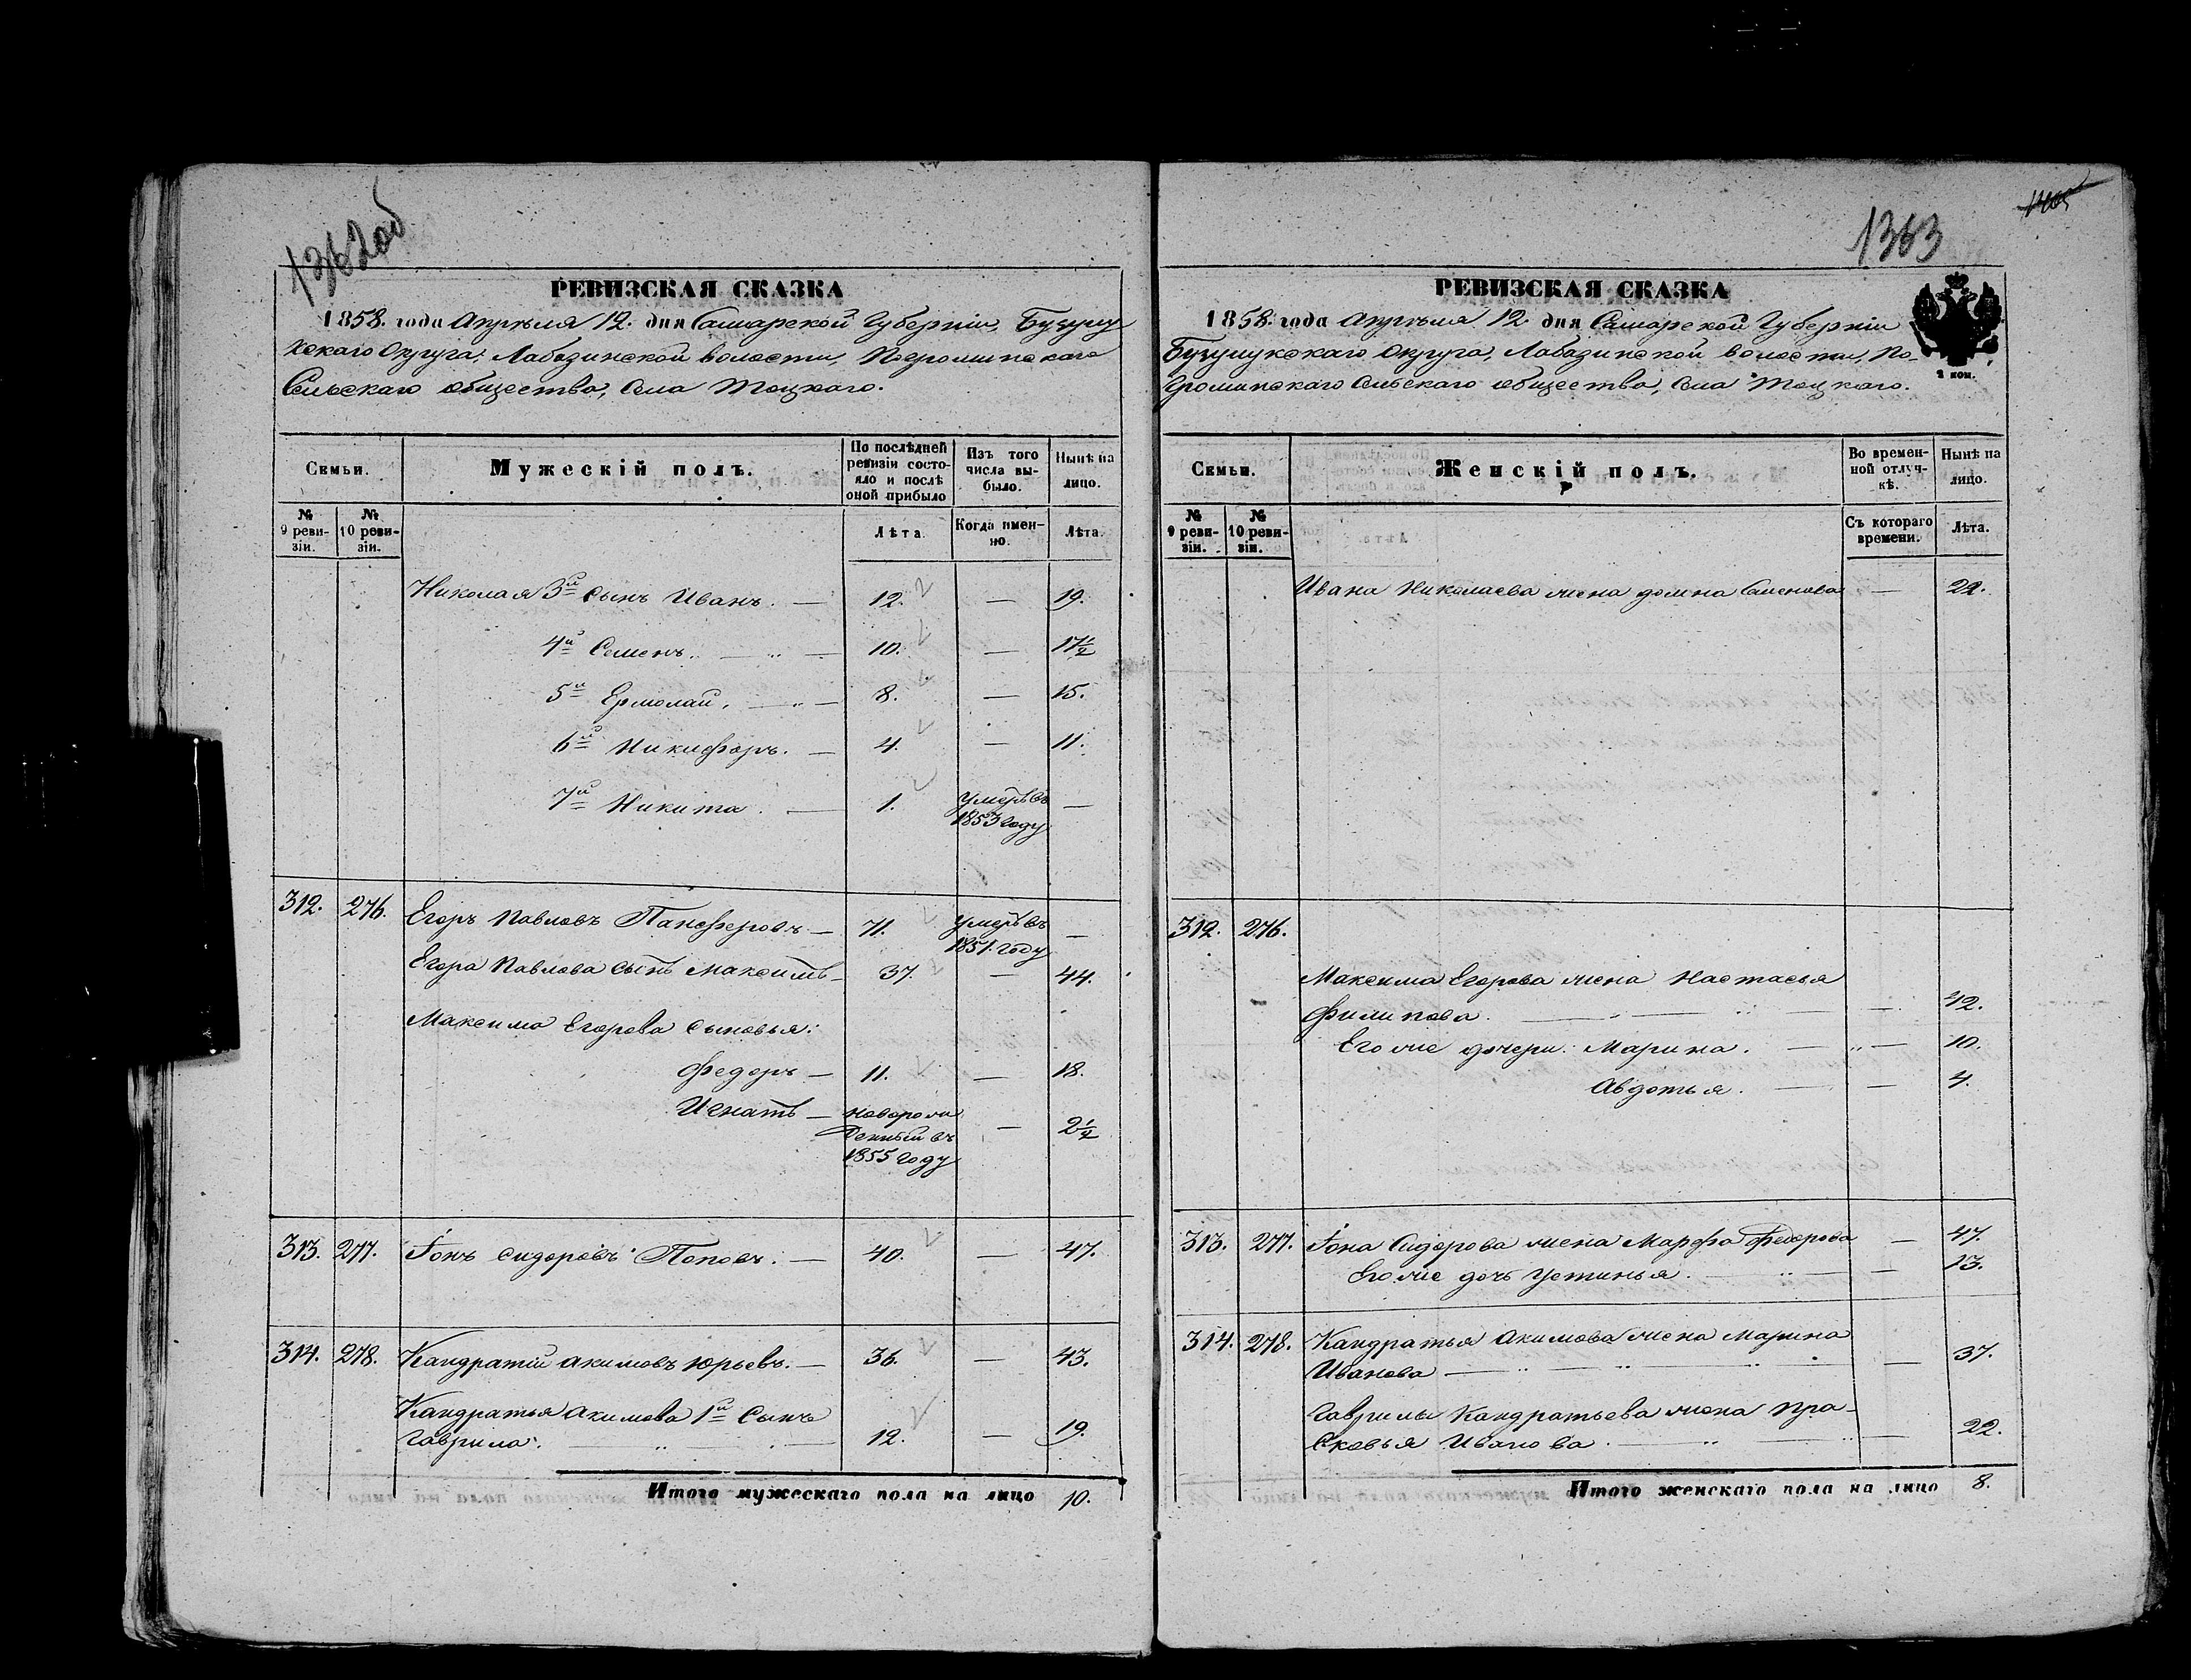 1362об
РЕВИЗСКАЯ СКАЗКА
1858. года Апрѣля 12. дня Самарской Губерніи, Бузулу
кскаго Округа, Лабазинской волости, Погроминскаго
Сельскаго общества, села Тоцкаго.
Семьи.
Мужескій полъ.
По послѣдней
ревизіи состо-
яло и послѣ
оной прибыло
Изъ того
числа вы-
было.
Нынѣ на
лицо.
№
9 реви-
зіи.
№
10 реви-
зіи.
Лѣта.
Когда имен-
но.
Лѣта.
Николая 3й сынъ Иванъ. — 12. — 19.
4й Семенъ. — 10. — 17½
5й Ермолай. — 8. — 15.
6й Никифоръ. — 4. — 11.
7й Никита. — 1. Умеръ въ —
1853 году
312. 276. Егоръ Павловъ Панферовъ — 71. Умеръ въ —
1851. году
Егора Павлова сынъ Максимъ — 37. — 44.
Максима Егорова сыновья:
Федоръ — 11. — 18.
Игнатъ — новорож
денный въ — 2¼
1855 году
313. 277. Іонъ Сидоровъ Поповъ. — 40. — 47.
314. 278. Кандратій Акимовъ Юрьевъ. — 36. — 43.
Кандратья Акимова 1й Сынъ
Гаврила. — 12. — 19.
Итого мужескаго пола на лицо 10.
1363
РЕВИЗСКАЯ СКАЗКА
1858. года Апрѣля 12 дня Самарской Губерніи
Бузулукскаго Округа, Лабазинской волости, По-
громинскаго Сельскаго общества, села Тоцкаго.
2 коп.
Семьи.
Женскій полъ.
Во времен-
ной отлуч-
кѣ.
Нынѣ на
лицо.
№
9 реви-
зіи.
№
10 реви-
зіи.
Съ котораго
времени.
Лѣта.
Ивана Николаева жена Домна Семенова — 22.
312. 276.
Максима Егорова жена Настасья
Филипова. — 42.
Его же дочери: Марина. — 10.
Авдотья. — 4.
313. 277. Іона Сидорова жена Марфа Федорова — 47.
Его же дочь Устинья. — 13.
314. 278. Кандратья Акимова жена Марина
Иванова — 37.
Гаврилы Кандратьева жена Пра-
сковья Иванова. — 22.
Итого женскаго пола на лицо 8.